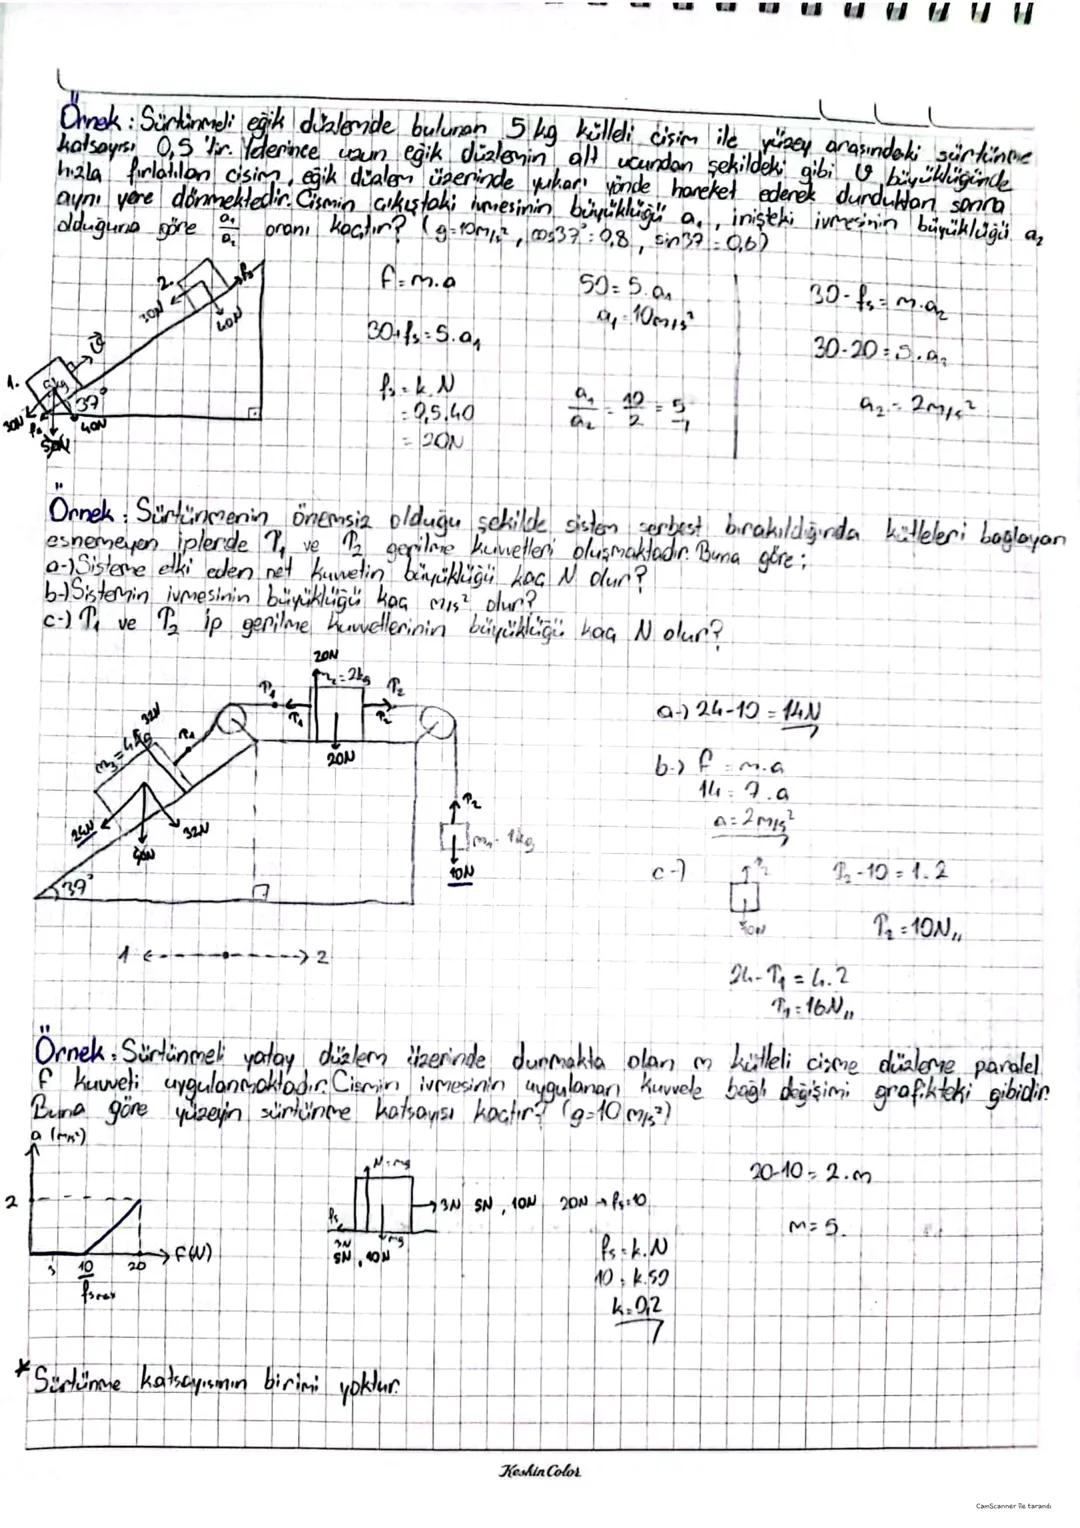 Örnek: Sürtünmeli eğik düzlemde bulunan 5 kg kütleli cisim ile yüzey arasındaki sürtünme
katsayısı 0,5 'tir. Yeterince uzun eğik düzlemin alt ucundan şekildeki gibi υ büyüklüğünde
hızla fırlatılan cisim, eğik düzlem üzerinde yukarı yönde hareket ederek durduktan sonra
aynı yere dönmektedir. Cismin çıkıştaki ivmesinin büyüklüğü a₁, inişteki ivmesinin büyüklüğü a₂
olduğuna göre a₁/a₂ oranı kaçtır? (g=10m/s², cos37°=0,8, sin37=0,6)
2.
fs
30N
40N
1.
5kg
υ
37°
30N
fs
40N
50N
f=m.a
30+fs=5.a₁
fs=k.N
=0,5.40
=20N
50=5.a₁
a₁=10m/s²
a₁/a₂=10/2=5
30-fs=m.a₂
30-20=5.a₂
a₂=2m/s²
Örnek: Sürtünmenin önemsiz olduğu şekilde sistem serbest bırakıldığında kütleleri bağlayan
esnemeyen iplerde T₁ ve T₂ gerilme kuvvetleri oluşmaktadır. Buna göre;
a-) Sisteme etki eden net kuvvetin büyüklüğü kaç N olur?
b-) Sistemin ivmesinin büyüklüğü kaç m/s² olur?
c-) T₁ ve T₂ ip gerilme kuvvetlerinin büyüklüğü kaç N olur?
20N
m₂=2kg
T₁
T₁
T₂
T₂
20N
32N
m₃=4kg
T₁
24N
32N
40N
37°
T₂
m₁=1kg
10N
1 <-----•-----> 2
a-) 24-10=14N
b-) f=m.a
14=7.a
a=2m/s²
c-)
T₂
10N
T₂-10=1.2
T₂=10N,,
24-T₁=4.2
T₁=16N,,
Örnek: Sürtünmeli yatay düzlem üzerinde durmakta olan m kütleli cisme düzleme paralel
f kuvveti uygulanmaktadır. Cismin ivmesinin uygulanan kuvvete bağlı değişimi grafikteki gibidir.
Buna göre yüzeyin sürtünme katsayısı kaçtır? (g=10m/s²)
a (m/s²)
2
3
10
20
f(N)
fsmax
N=mg
3N 5N, 10N 20N → fs=10
fs
3N
5N, 10N
mg
fs=k.N
10=k.50
k=0,2
20-10=2.m
m=5
* Sürtünme katsayısının birimi yoktur.
KeskinColor
CamScanner ile tarandı